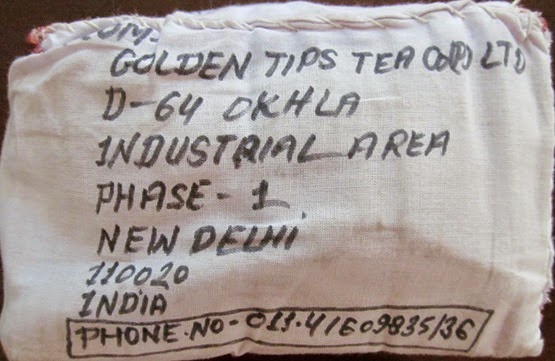 FROM:
GOLDEN TIPS TEA CO(P) LTD
D-64 OKHLA
INDUSTRIAL AREA
PHASE-1
NEW DELHI
110020
INDIA
PHONE.NO-011-41609835/36